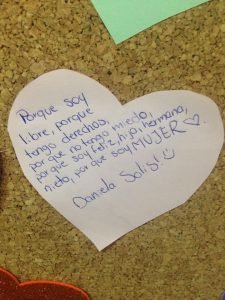 Porque soy
libre, porque
tengo derechos,
porque no tengo miedo,
porque soy feliz, hija, hermana,
nieta, porque soy MUJER ♡.
Daniela Solis! ☺